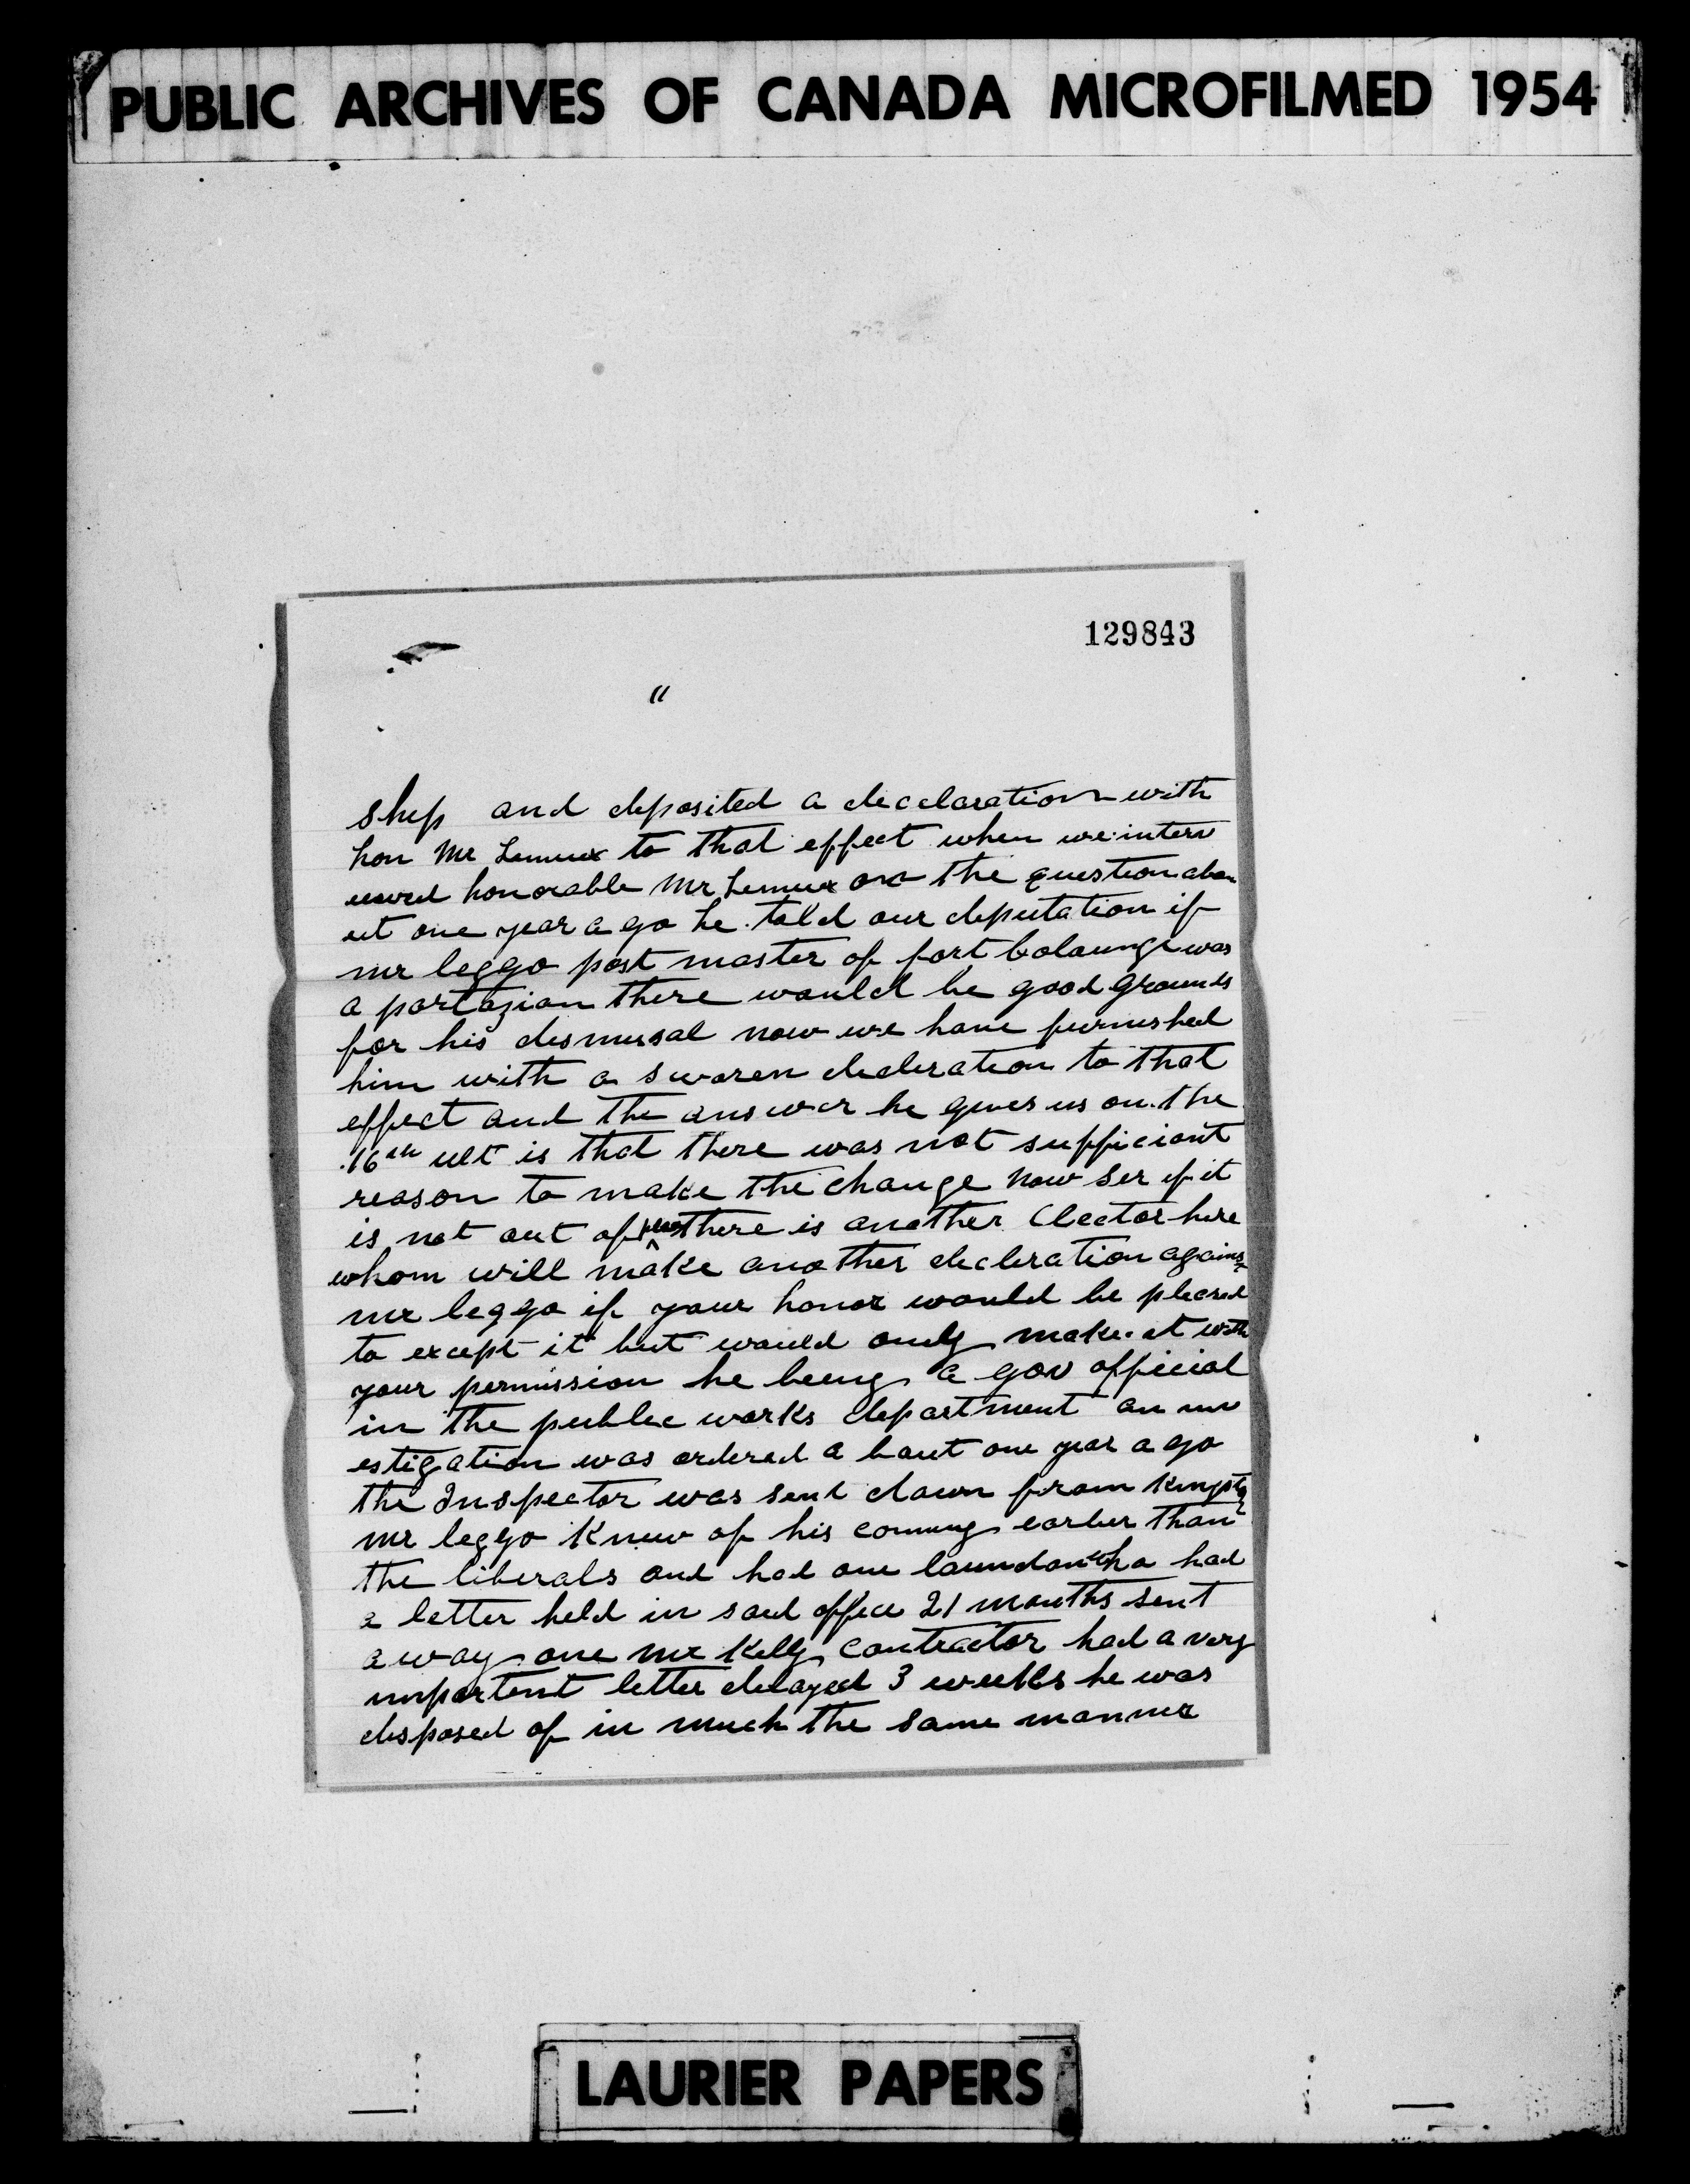 PUBLIC ARCHIVES OF CANADA MICROFILMED 1954
129843
"
ship and deposited a decclaration with
hon Mr Lemieux to that effect when we interv
iewed honorable Mr Lemieux on the question abo
ut one year a go he told our deputation if
mr leggo post master of fort Coulounge was
a partazian there would be good grounds
for his dismissal now we have furnished
him with a sworen decleration to that
effect and the answer he gives us on the
16th ult is that there was not sufficiant
reason to make the change now ser if it
is not out of there is another Elector here
whom will make another decleration agains
mr leggo if your honor would be pleased
to except it but would only make it with
your permission he being a gov official
in the public works department an inv
estigation was ordered a bout one year a go
the Inspector was sent down from Kingston
mr leggo knew of his coming earlier than
the liberals and had one who had
a letter held in said office 21 months sent
a way one mr Kelly contractor had a very
important letter delayed 3 weeks he was
disposed of in much the same manner
LAURIER PAPERS